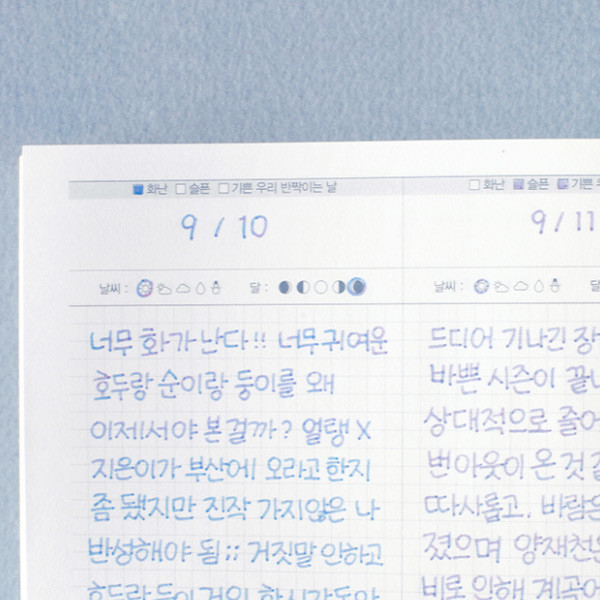 화난 슬픈 기쁜 우리 반짝이는 날
9 / 10
날씨 : 달 :
너무 화가 난다!! 너무 귀여운
호두랑 순이랑 둥이를 왜
이제서야 본걸까? 얼탱 X
지은이가 부산에 오라고 한지
좀 됐지만 진작 가지않은 나
반성해야 됨 ;; 거짓말 안하고
호두랑 둥이
화난 슬픈 기쁜
9 / 11
날씨 :
드디어 기나긴 장
바쁜 시즌이 끝
상대적으로 줄어
번아웃이 온 것
따사롭고, 바람은
졌으며 양재천
비로 인해 계곡